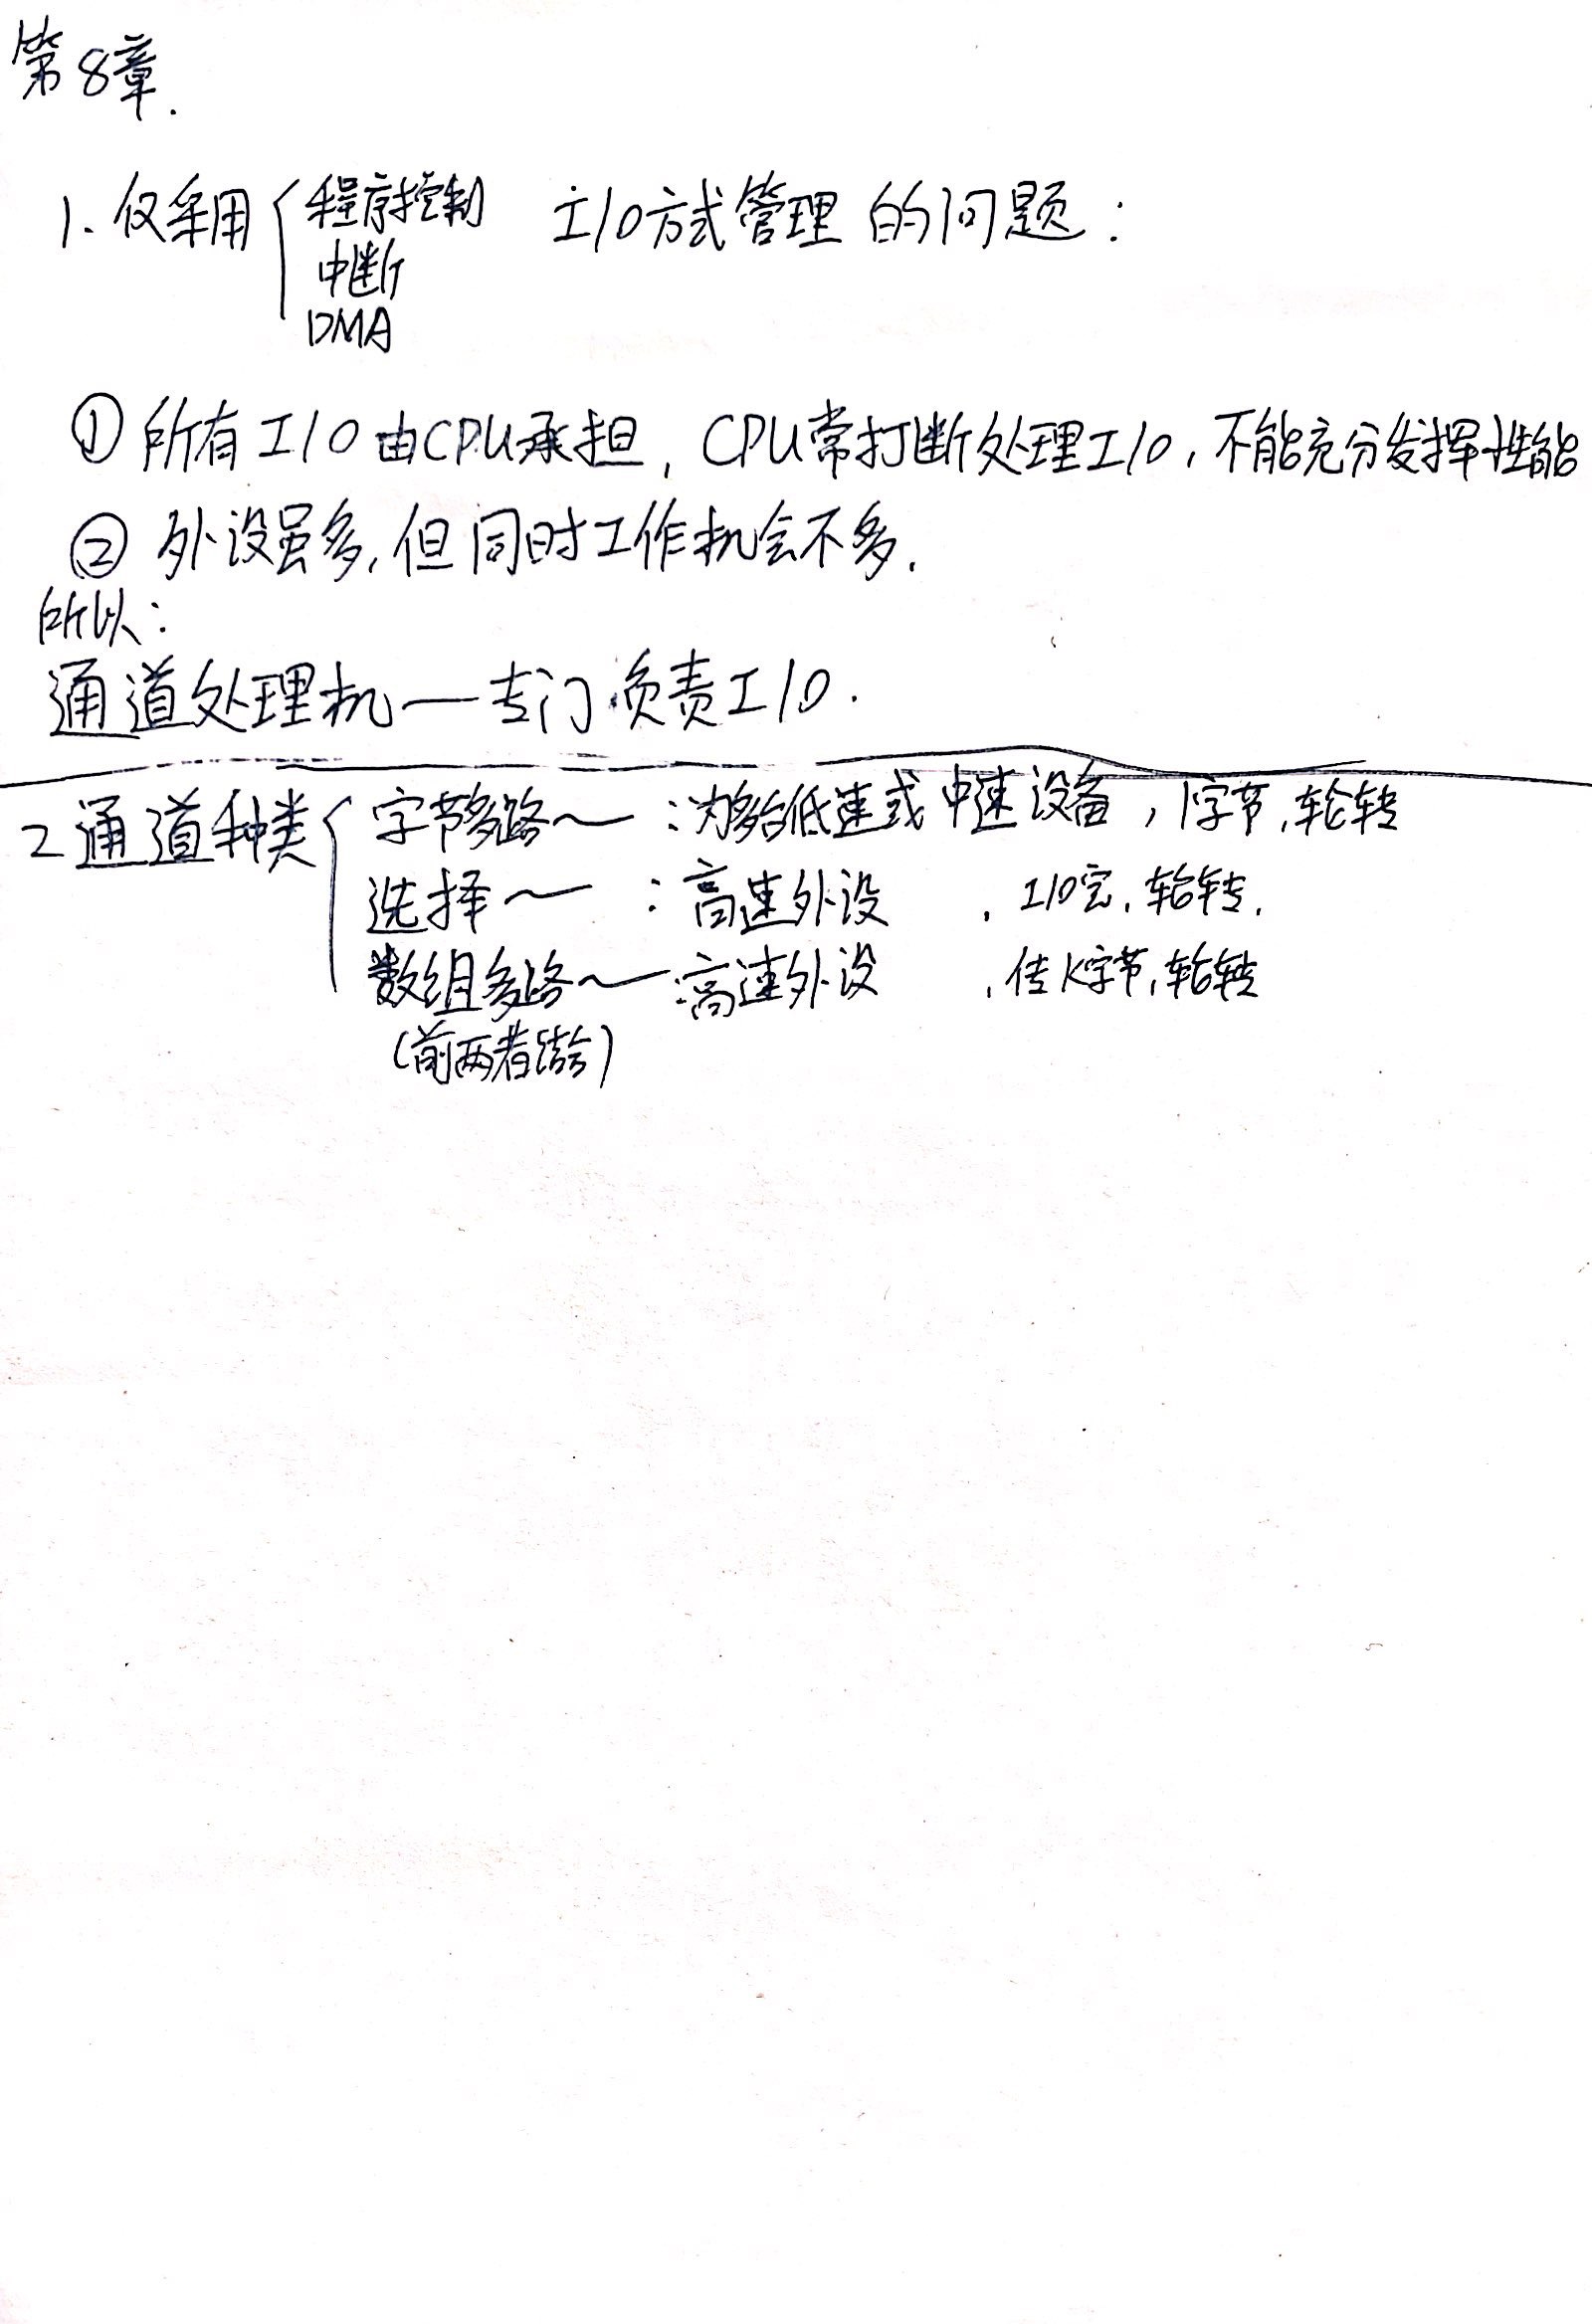 第8章.
1. 仅采用 { 程序控制 I/O方式管理的问题:
中断
DMA
① 所有I/O由CPU承担, CPU常打断处理I/O, 不能充分发挥性能
② 外设虽多, 但同时工作机会不多.
所以:
通道处理机—专门负责I/O.
2 通道种类 { 字节多路～: 为多台低速或中速设备, 1字节, 轮转
选择～: 高速外设, I/O完, 轮转.
数组多路～: 高速外设, 传K字节, 轮转
(前两者结合)